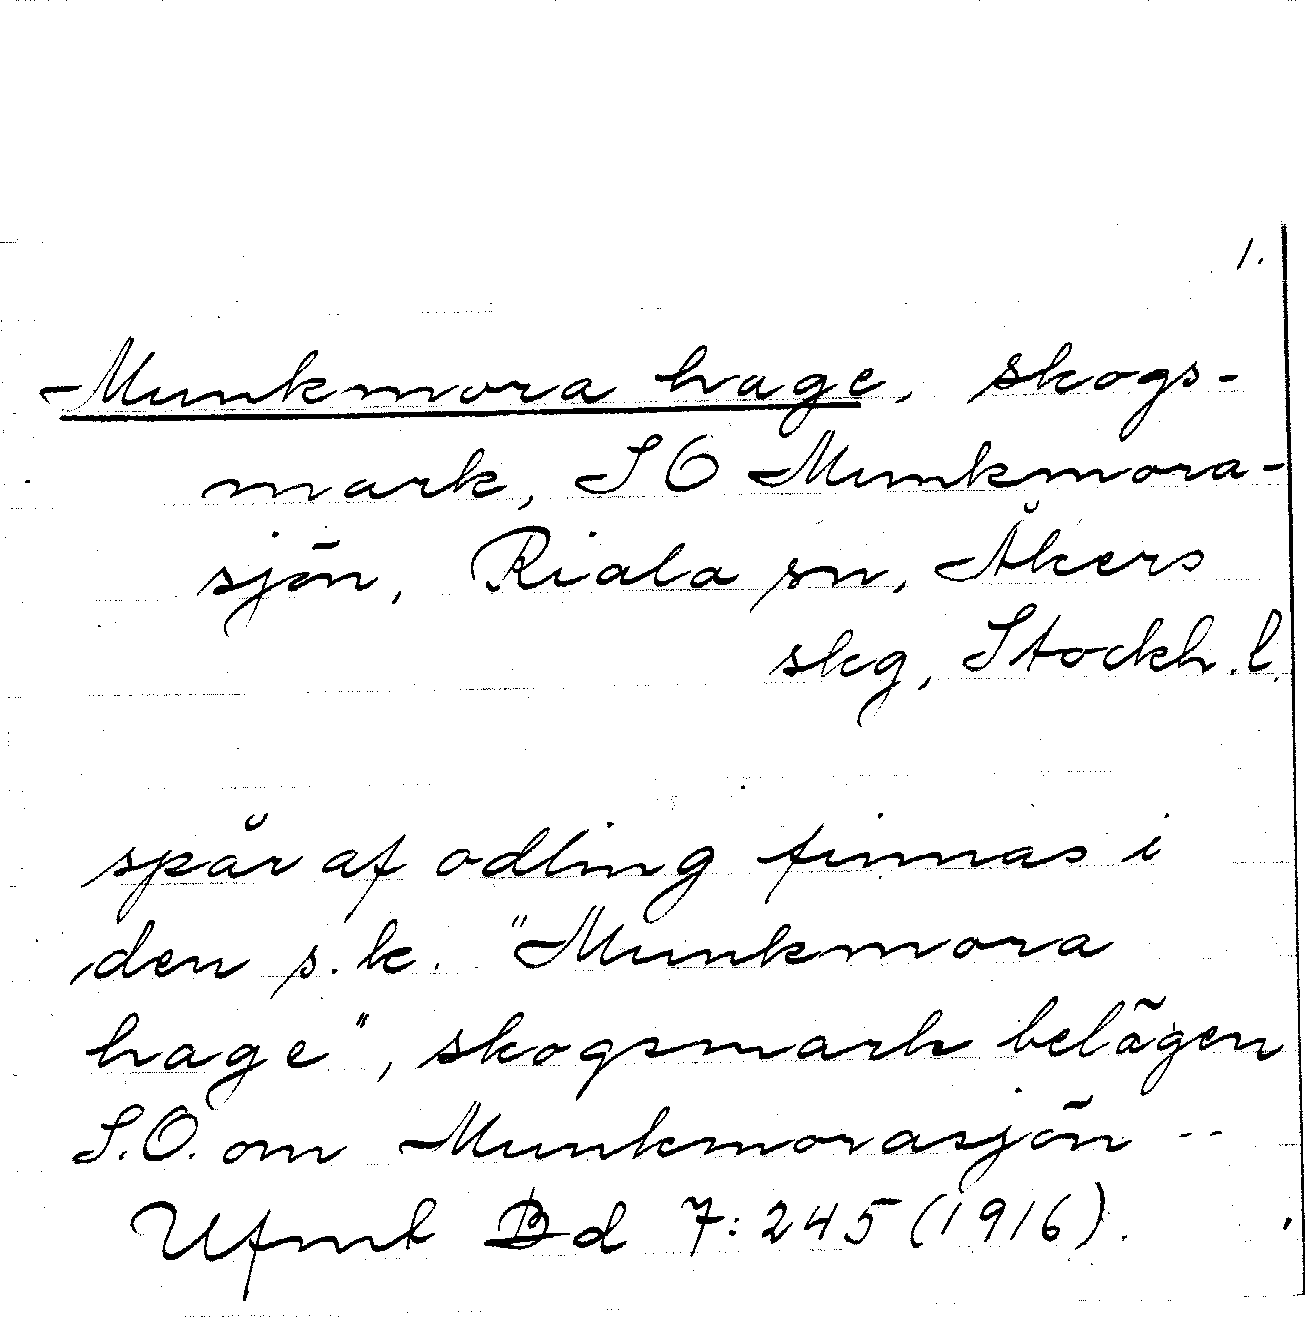 1.
Munkmora hage, skogs-
mark, SO Munkmora-
sjön, Riala sn, Åkers
skg, Stockh. l.
spår af odling finnas i
den s.k. "Munkmora
hage", skogsmark belägen
S.O. om Munkmorasjön --
Ufmt Bd 7:245 (1916).